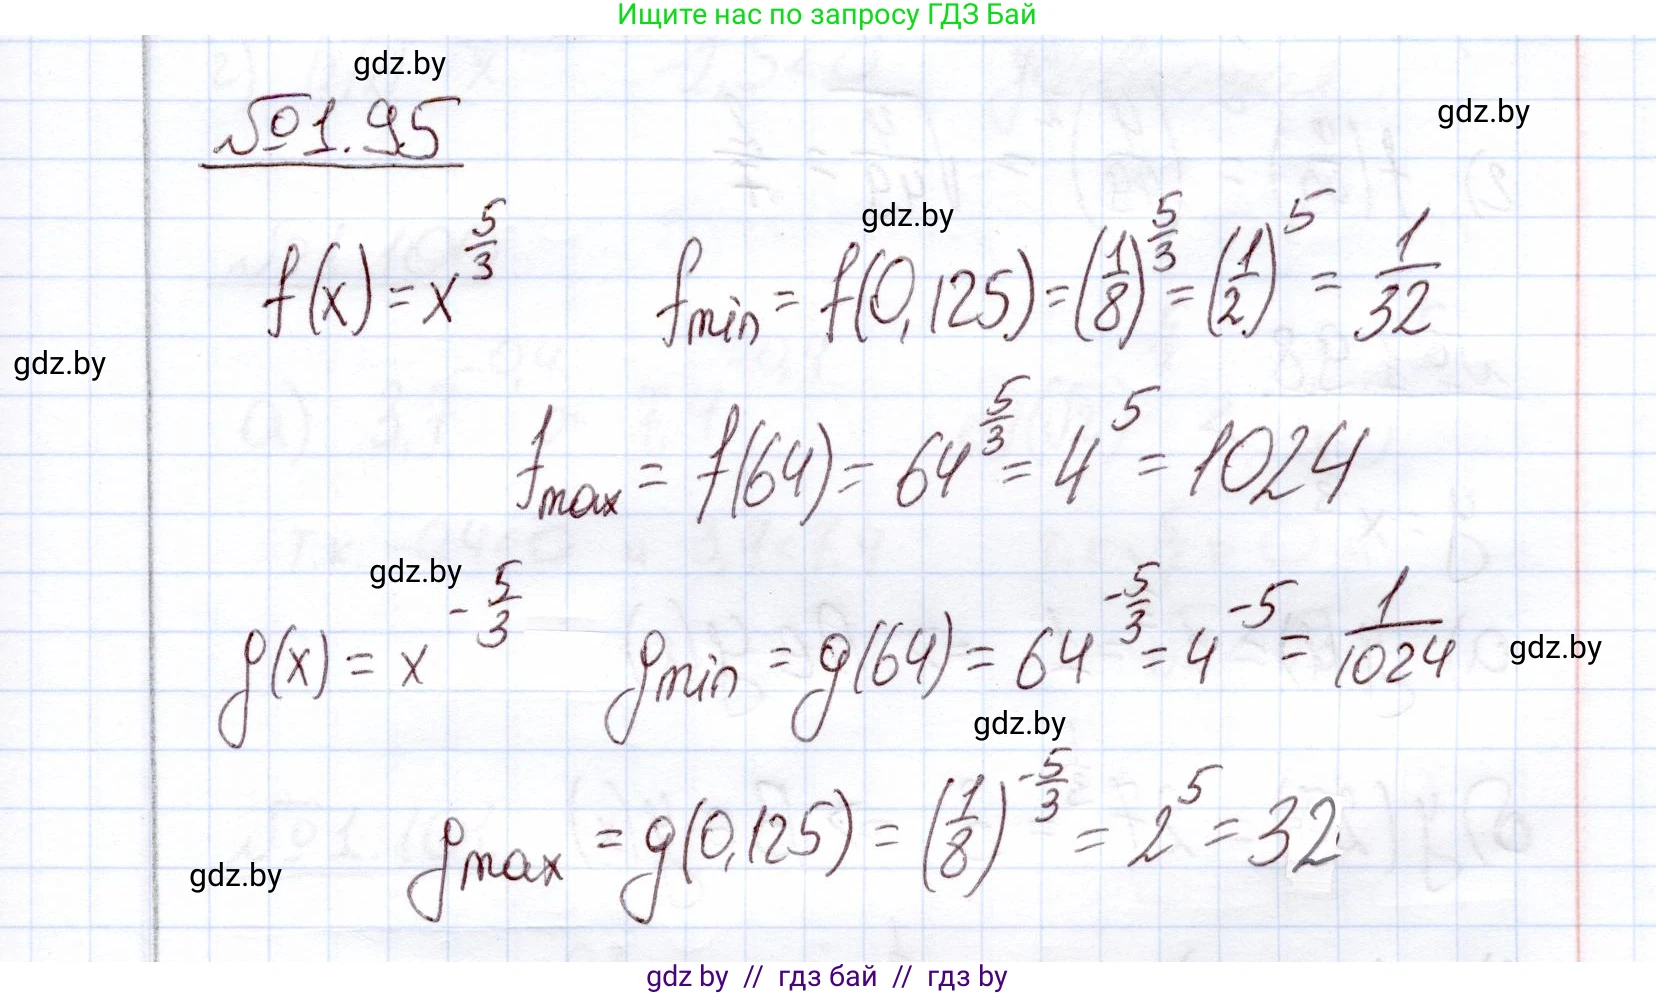 Ищите нас по запросу ГДЗ Бай
gdz.by
gdz.by
№1.95
gdz.by
f(x) = x^{5/3} f_{min} = f(0,125) = (1/8)^{5/3} = (1/2)^5 = 1/32
gdz.by
f_{max} = f(64) = 64^{5/3} = 4^5 = 1024
gdz.by
g(x) = x^{-5/3} g_{min} = g(64) = 64^{-5/3} = 4^{-5} = 1/1024
gdz.by
gdz.by
g_{max} = g(0,125) = (1/8)^{-5/3} = 2^5 = 32
gdz.by
gdz by // гдз бай // гдз by